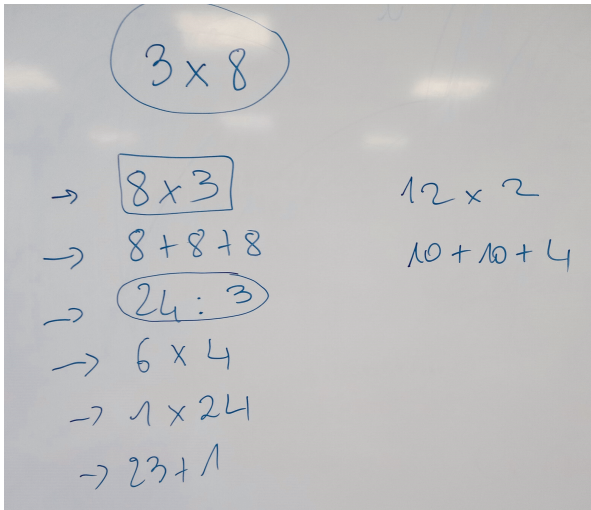 3 x 8
→ 8 x 3
→ 8 + 8 + 8
→ 24 : 3
→ 6 x 4
→ 1 x 24
→ 23 + 1
12 x 2
10 + 10 + 4